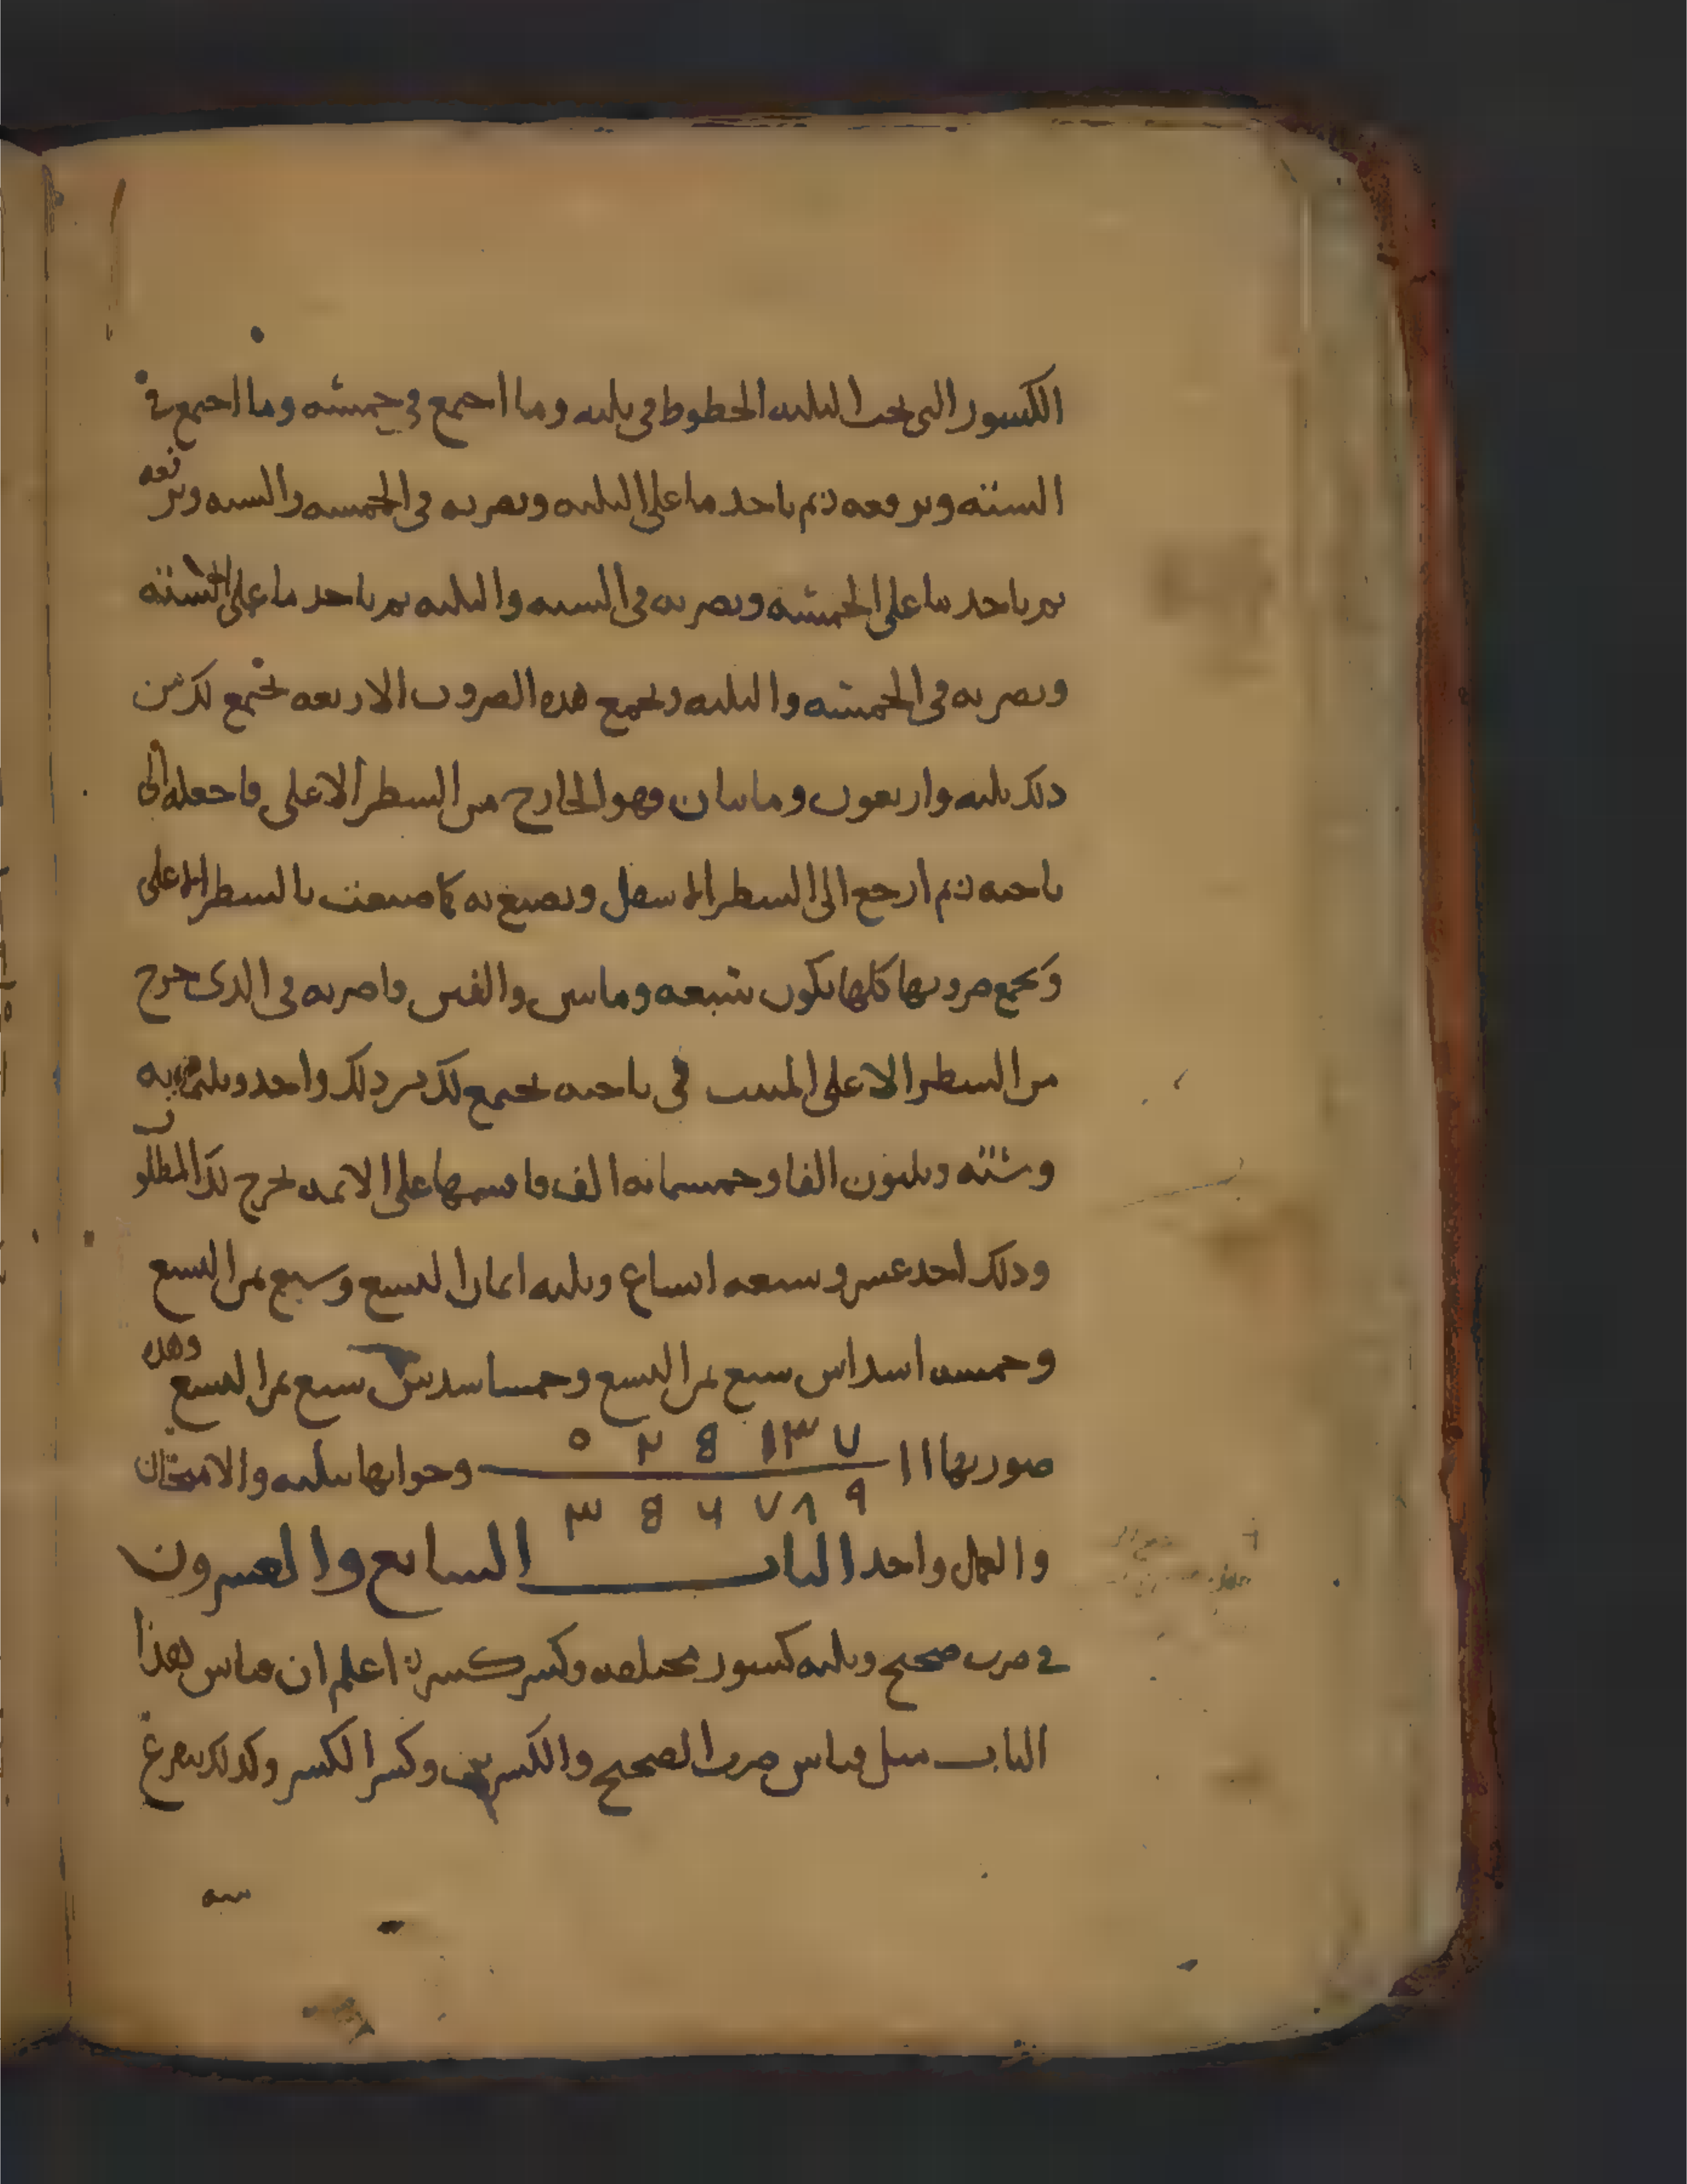 الكسور التى تحت الثلثه الخطوط فى ثلثه وما اجتمع فى خمسه وما اجتمع فى
السته وترفعه ثم تاخذ ما على الثلثه وتضربه فى الخمسه والسته وترفعه
ثم تاخذ ما على الخمسه وتضربه فى السته والثلثه ثم تاخذ ما على السته
وتضربه فى الخمسه والثلثه وتجمع هذه الضروب الاربعه يجتمع لك من
ذلك ثلثه واربعون ومايتان فهو الخارج من السطر الاعلى فاجعله فى
ناحيه ثم ارجع الى السطر الاسفل وتصنع به كما صنعت بالسطر الاعلى
وتجمع ضروبها كلها يكون سبعه ومايتين والفين فاضربه فى الذى خرج
من السطر الاعلى المثبت فى ناحيه يجتمع لك من ذلك واحد وثلثمايه
وسته وثلثون الفا وخمسمايه الف فاقسمها على الايمه يخرج لك المطلوب
وذلك احد عشر وسبعه اتساع وثلثه اثمان التسع وسبع ثمن التسع
وخمسه اسداس سبع ثمن التسع وخمسا سدس سبع ثمن التسع وهذه
صورتها ١١ ٧ ٣ ١ 8 ٢ ٥ وجوابها بثلثه والامتحان
٩ ٨ ٧ ٦ 8 ٣
والعمل واحد الباب السابع والعشرون
فى ضرب صحيح وثلثه كسور مختلفه وكسر كسر اعلم ان قياس هذا
الباب مثل قياس ضرب الصحيح والكسرين وكسر الكسر وكذلك يتفرع